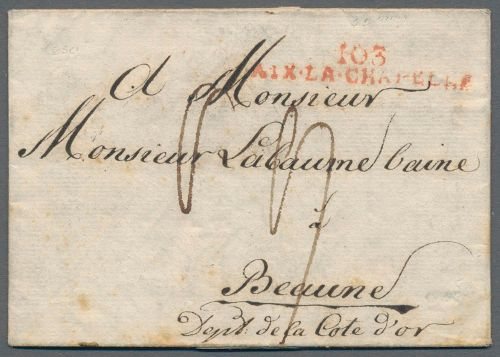 103
AIX·LA·CHAPELLE
A Monsieur
Monsieur Labaume l'aine
à
Beaune
Dept. de la Cote d'or